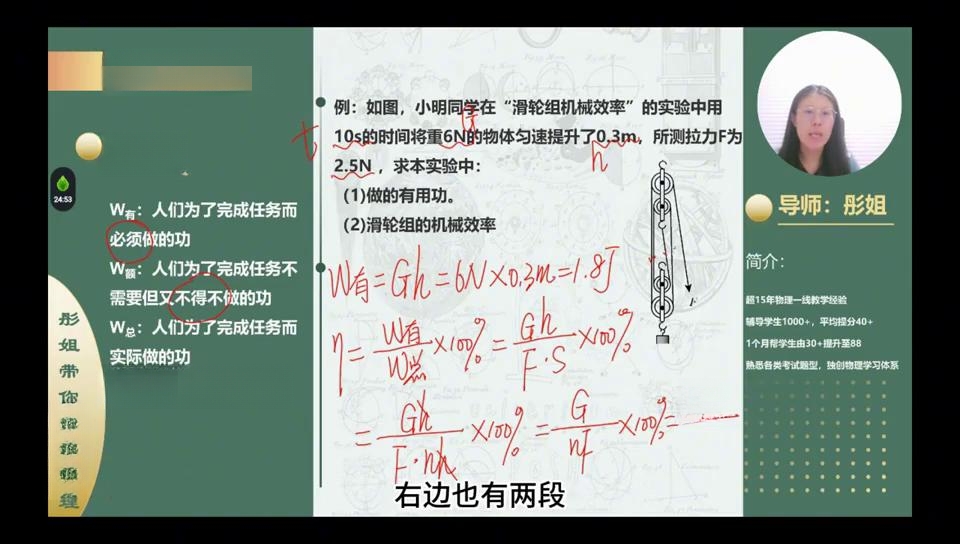 24:53
W有：人们为了完成任务而
必须做的功
W额：人们为了完成任务不
需要但又不得不做的功
W总：人们为了完成任务而
实际做的功
彤
姐
带
你
理
例：如图，小明同学在“滑轮组机械效率”的实验中用
10s的时间将重6N的物体匀速提升了0.3m，所测拉力F为
2.5N，求本实验中：
(1)做的有用功。
(2)滑轮组的机械效率
t
G
h
F
W有=Gh=6N×0.3m=1.8J
η=W有/W总×100%=Gh/F·S×100%
=Gh/F·nh×100%=G/nF×100%=
右边也有两段
导师：彤姐
简介：
超15年物理一线教学经验
辅导学生1000+，平均提分40+
1个月帮学生由30+提升至88
熟悉各类考试题型，独创物理学习体系